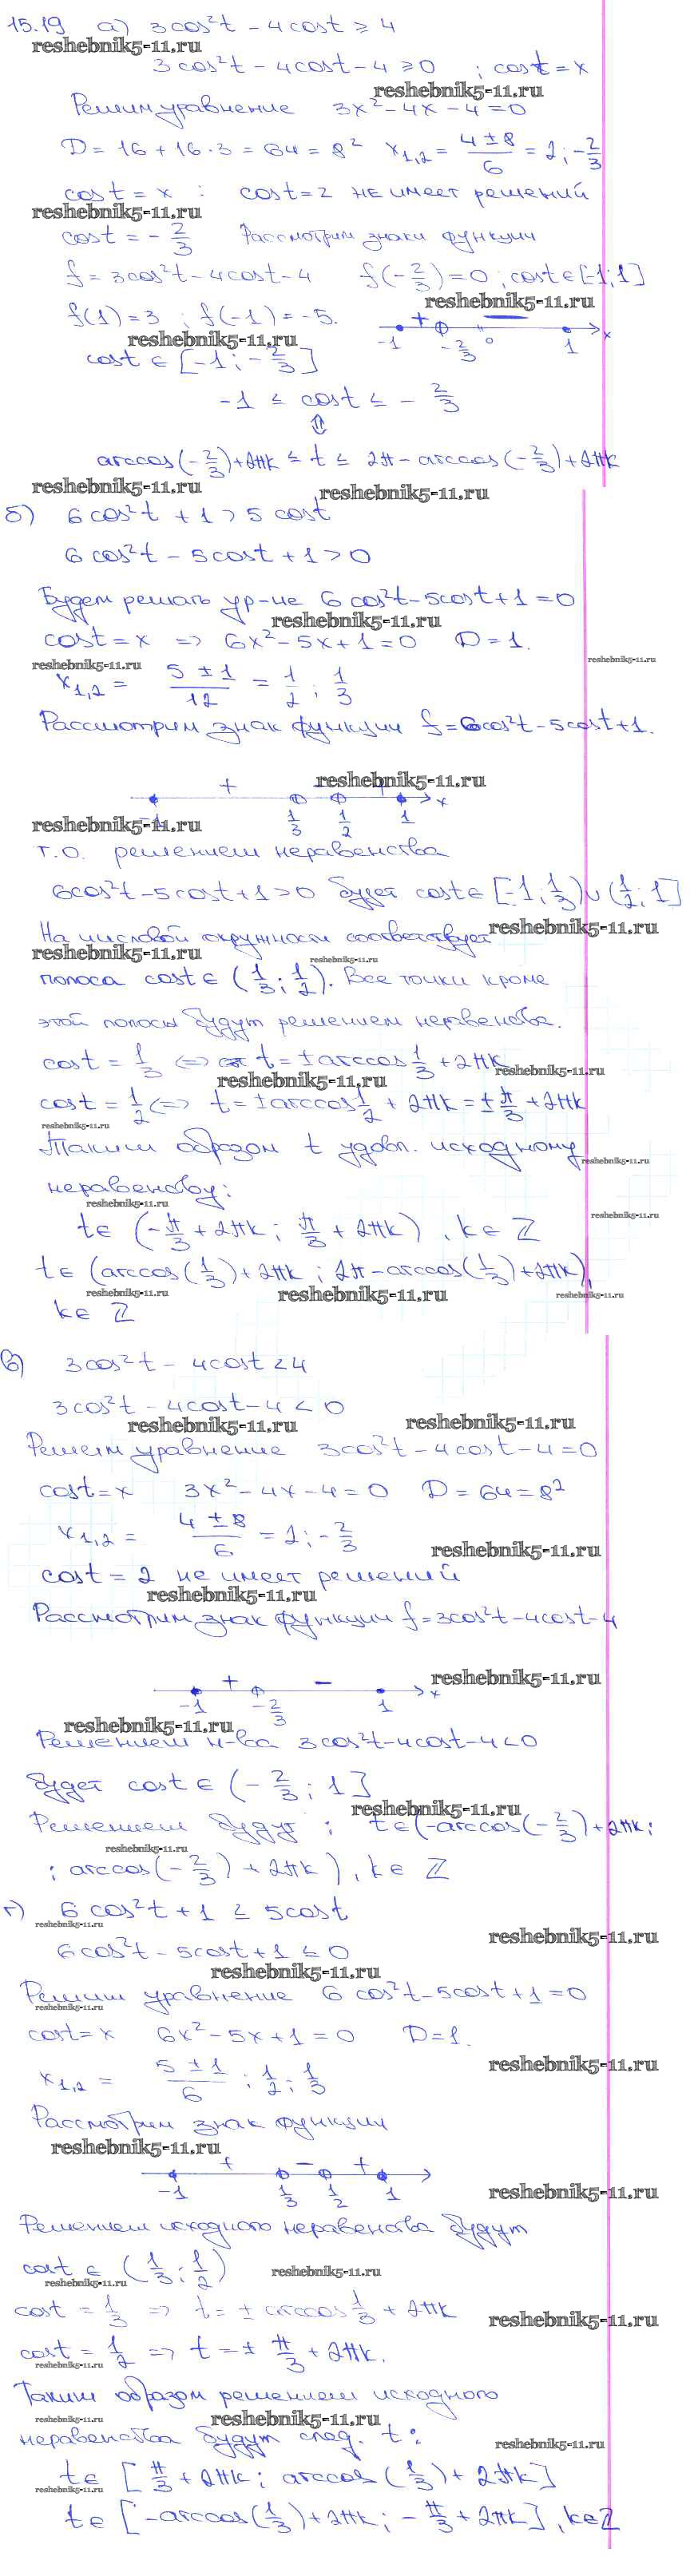 15.19 а) 3cos²t - 4cost ≥ 4
reshebnik5-11.ru
3cos²t - 4cost - 4 ≥ 0 ; cost = x
reshebnik5-11.ru
Решим уравнение 3x² - 4x - 4 = 0
D = 16 + 16·3 = 64 = 8² x₁,₂ = (4 ± 8)/6 = 2; -2/3
cost = x : cost = 2 не имеет решений
reshebnik5-11.ru
cost = -2/3 Рассмотрим знаки функции
f = 3cos²t - 4cost - 4 f(-2/3) = 0 ; cost ∈ [-1; 1]
reshebnik5-11.ru
f(1) = 3 ; f(-1) = -5.
+ −
-1 -2/3 0 1 x
reshebnik5-11.ru
cost ∈ [-1; -2/3]
-1 ≤ cost ≤ -2/3
⇕
arccos(-2/3) + 2πk ≤ t ≤ 2π - arccos(-2/3) + 2πk
reshebnik5-11.ru reshebnik5-11.ru
б) 6cos²t + 1 > 5cost
6cos²t - 5cost + 1 > 0
Будем решать ур-ие 6cos²t - 5cost + 1 = 0
reshebnik5-11.ru
cost = x ⇒ 6x² - 5x + 1 = 0 D = 1.
reshebnik5-11.ru reshebnik5-11.ru
x₁,₂ = (5 ± 1)/12 = 1/2 ; 1/3
Рассмотрим знак функции f = 6cos²t - 5cost + 1.
reshebnik5-11.ru
+ − +
-1 1/3 1/2 1 x
reshebnik5-11.ru
т.о. решением неравенства
6cos²t - 5cost + 1 > 0 будет cost ∈ [-1; 1/3) ∪ (1/2; 1]
На числовой окружности соответствует
reshebnik5-11.ru
reshebnik5-11.ru reshebnik5-11.ru
полоса cost ∈ (1/3; 1/2). Все точки кроме
этой полосы будут решением неравенства.
cost = 1/3 ⇔ t = ±arccos 1/3 + 2πk
reshebnik5-11.ru
reshebnik5-11.ru
cost = 1/2 ⇔ t = ±arccos 1/2 + 2πk = ±π/3 + 2πk
reshebnik5-11.ru
Таким образом t удовл. исходному
reshebnik5-11.ru
неравенству:
reshebnik5-11.ru reshebnik5-11.ru
t ∈ (-π/3 + 2πk ; π/3 + 2πk), k ∈ Z
t ∈ (arccos(1/3) + 2πk ; 2π - arccos(1/3) + 2πk),
reshebnik5-11.ru reshebnik5-11.ru reshebnik5-11.ru
k ∈ Z
в) 3cos²t - 4cost < 4
3cos²t - 4cost - 4 < 0
reshebnik5-11.ru reshebnik5-11.ru
Решим уравнение 3cos²t - 4cost - 4 = 0
cost = x 3x² - 4x - 4 = 0 D = 64 = 8²
x₁,₂ = (4 ± 8)/6 = 2; -2/3
reshebnik5-11.ru
cost = 2 не имеет решений
reshebnik5-11.ru
Рассмотрим знак функции f = 3cos²t - 4cost - 4
reshebnik5-11.ru
+ −
-1 -2/3 1 x
reshebnik5-11.ru
Решением н-ва 3cos²t - 4cost - 4 < 0
будет cost ∈ (-2/3; 1]
reshebnik5-11.ru
Решением будут : t ∈ (-arccos(-2/3) + 2πk;
reshebnik5-11.ru
; arccos(-2/3) + 2πk), k ∈ Z
г) 6cos²t + 1 ≤ 5cost
reshebnik5-11.ru reshebnik5-11.ru
6cos²t - 5cost + 1 ≤ 0
reshebnik5-11.ru
Решим уравнение 6cos²t - 5cost + 1 = 0
reshebnik5-11.ru
cost = x 6x² - 5x + 1 = 0 D = 1.
reshebnik5-11.ru
x₁,₂ = (5 ± 1)/6 ; 1/2 ; 1/3
Рассмотрим знак функции
reshebnik5-11.ru
+ − +
-1 1/3 1/2 1
reshebnik5-11.ru
Решением исходного неравенства будут
cost ∈ (1/3; 1/2)
reshebnik5-11.ru reshebnik5-11.ru
cost = 1/3 ⇒ t = ±arccos 1/3 + 2πk
reshebnik5-11.ru
cost = 1/2 ⇒ t = ±π/3 + 2πk.
reshebnik5-11.ru
Таким образом решением исходного
reshebnik5-11.ru reshebnik5-11.ru
неравенства будут след. t:
reshebnik5-11.ru
t ∈ [π/3 + 2πk; arccos(1/3) + 2πk]
reshebnik5-11.ru
t ∈ [-arccos(1/3) + 2πk; -π/3 + 2πk], k ∈ Z